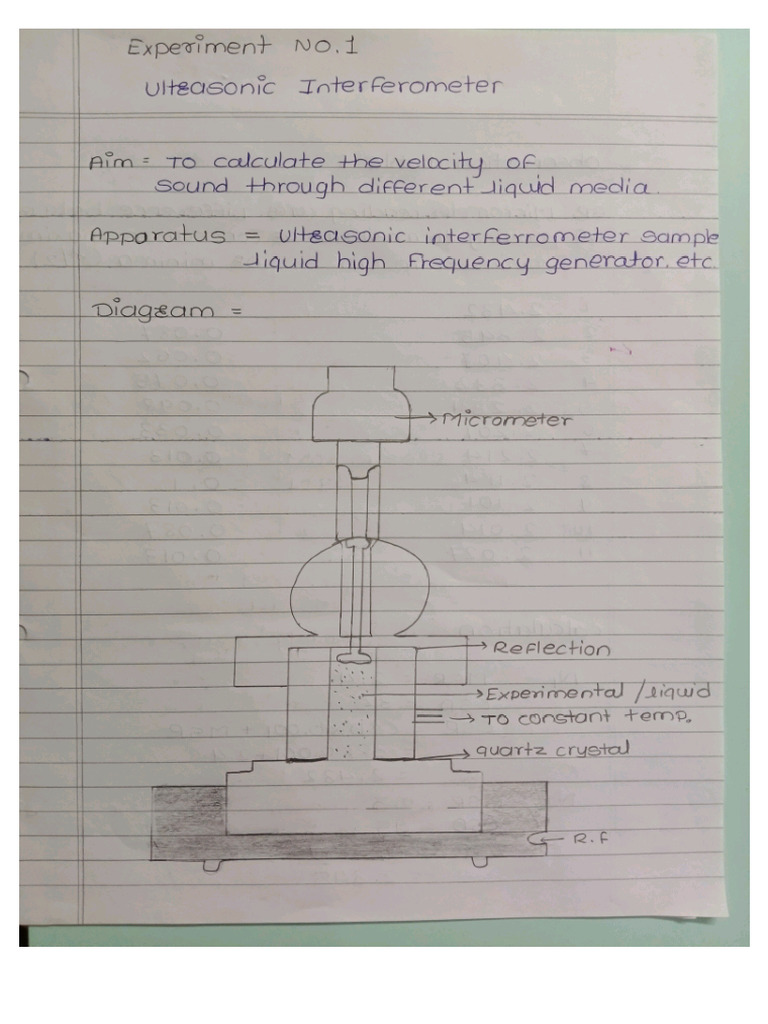 Experiment NO.1
Ultrasonic Interferometer
Aim = To calculate the velocity of
sound through different liquid media.
Apparatus = Ultrasonic interferrometer sample
liquid high frequency generator. etc.
Diagram =
Micrometer
Reflection
Experimental / liquid
To constant temp.
quartz crystal
R.f